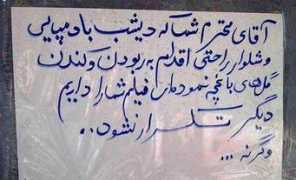 آقای محترم شما که دیشب با دمپایی
و شلوار راحتی اقدام به ربودن و کندن
گلهای باغچه نموده‌ای فیلم شما را داریم
دیگر تکرار نشود..
وگرنه ...